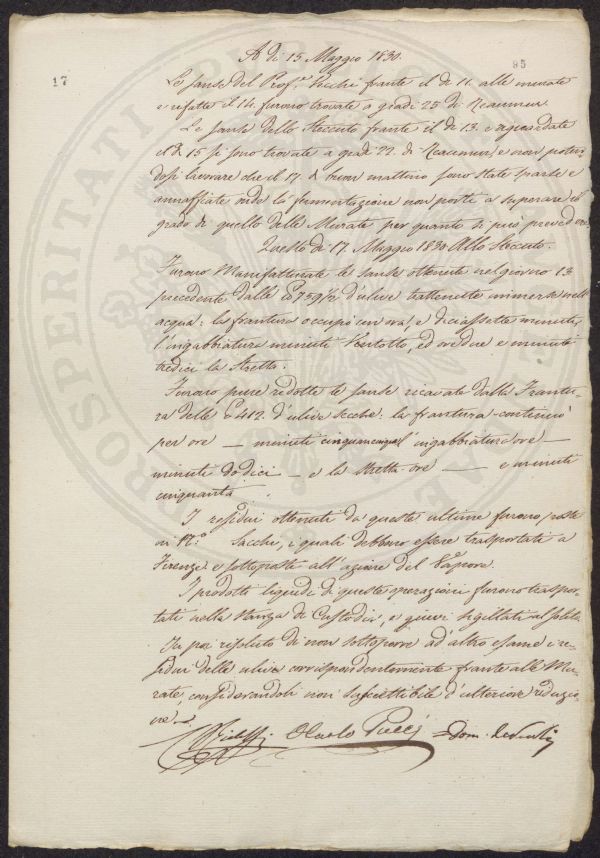 A dì 15 Maggio 1830.
95
17
Le sanse del Prof.re Secchi frante il dì 11. alle murate
e rifatte il 14. furono trovate a gradi 25 di Reaumur.
Le sanse dello Steccuto frante il dì 13. e riguardate
il dì 15 si sono trovate a gradi 22. di Reaumur, e non poten-
dosi lavorare che il 17. di buon mattino sono state sparse e
annaffiate onde la fermentazione non porti a superare il
grado di quello delle Murate per quanto si può prevedere.
Questo dì 17. Maggio 1830 Allo Steccuto.
Furono Manifatturate le sanse ottenute nel giorno 13
precedente dalle 759 1/2 d'ulive trattenute immerse nell'
acqua: la frantura occupò un ora, e diciassette minuti,
l'ingabbiatura minuti Ventotto, ed ore due e minuti
tredici la Stretta.
Furono pure ridotte le sanse ricavate dalla Frantu-
ra delle 412. d'ulive secche: la frantura continuò
per ore — minuti cinquancinque l'ingabbiatura ore —
minuti dodici — e la stretta ore — e minuti
cinquanta
I residui ottenuti da queste ultime furono poste
in N.° Sacche, i quali debbono essere trasportati a
Firenze e sottoposte all'azione del Vapore.
I prodotti liquidi di queste operazioni furono traspor-
tati nella stanza di Custodia, e quivi sigillati al solito
Fu poi risoluto di non sottoporre ad altro esame i re-
sidui delle ulive corrispondentemente frante alle Mu-
rate, considerandoli non suscettibile d'ulteriore riduzio-
ne.
Carlo Pucci = Dom.
PROSPERITATI PUBLICAE